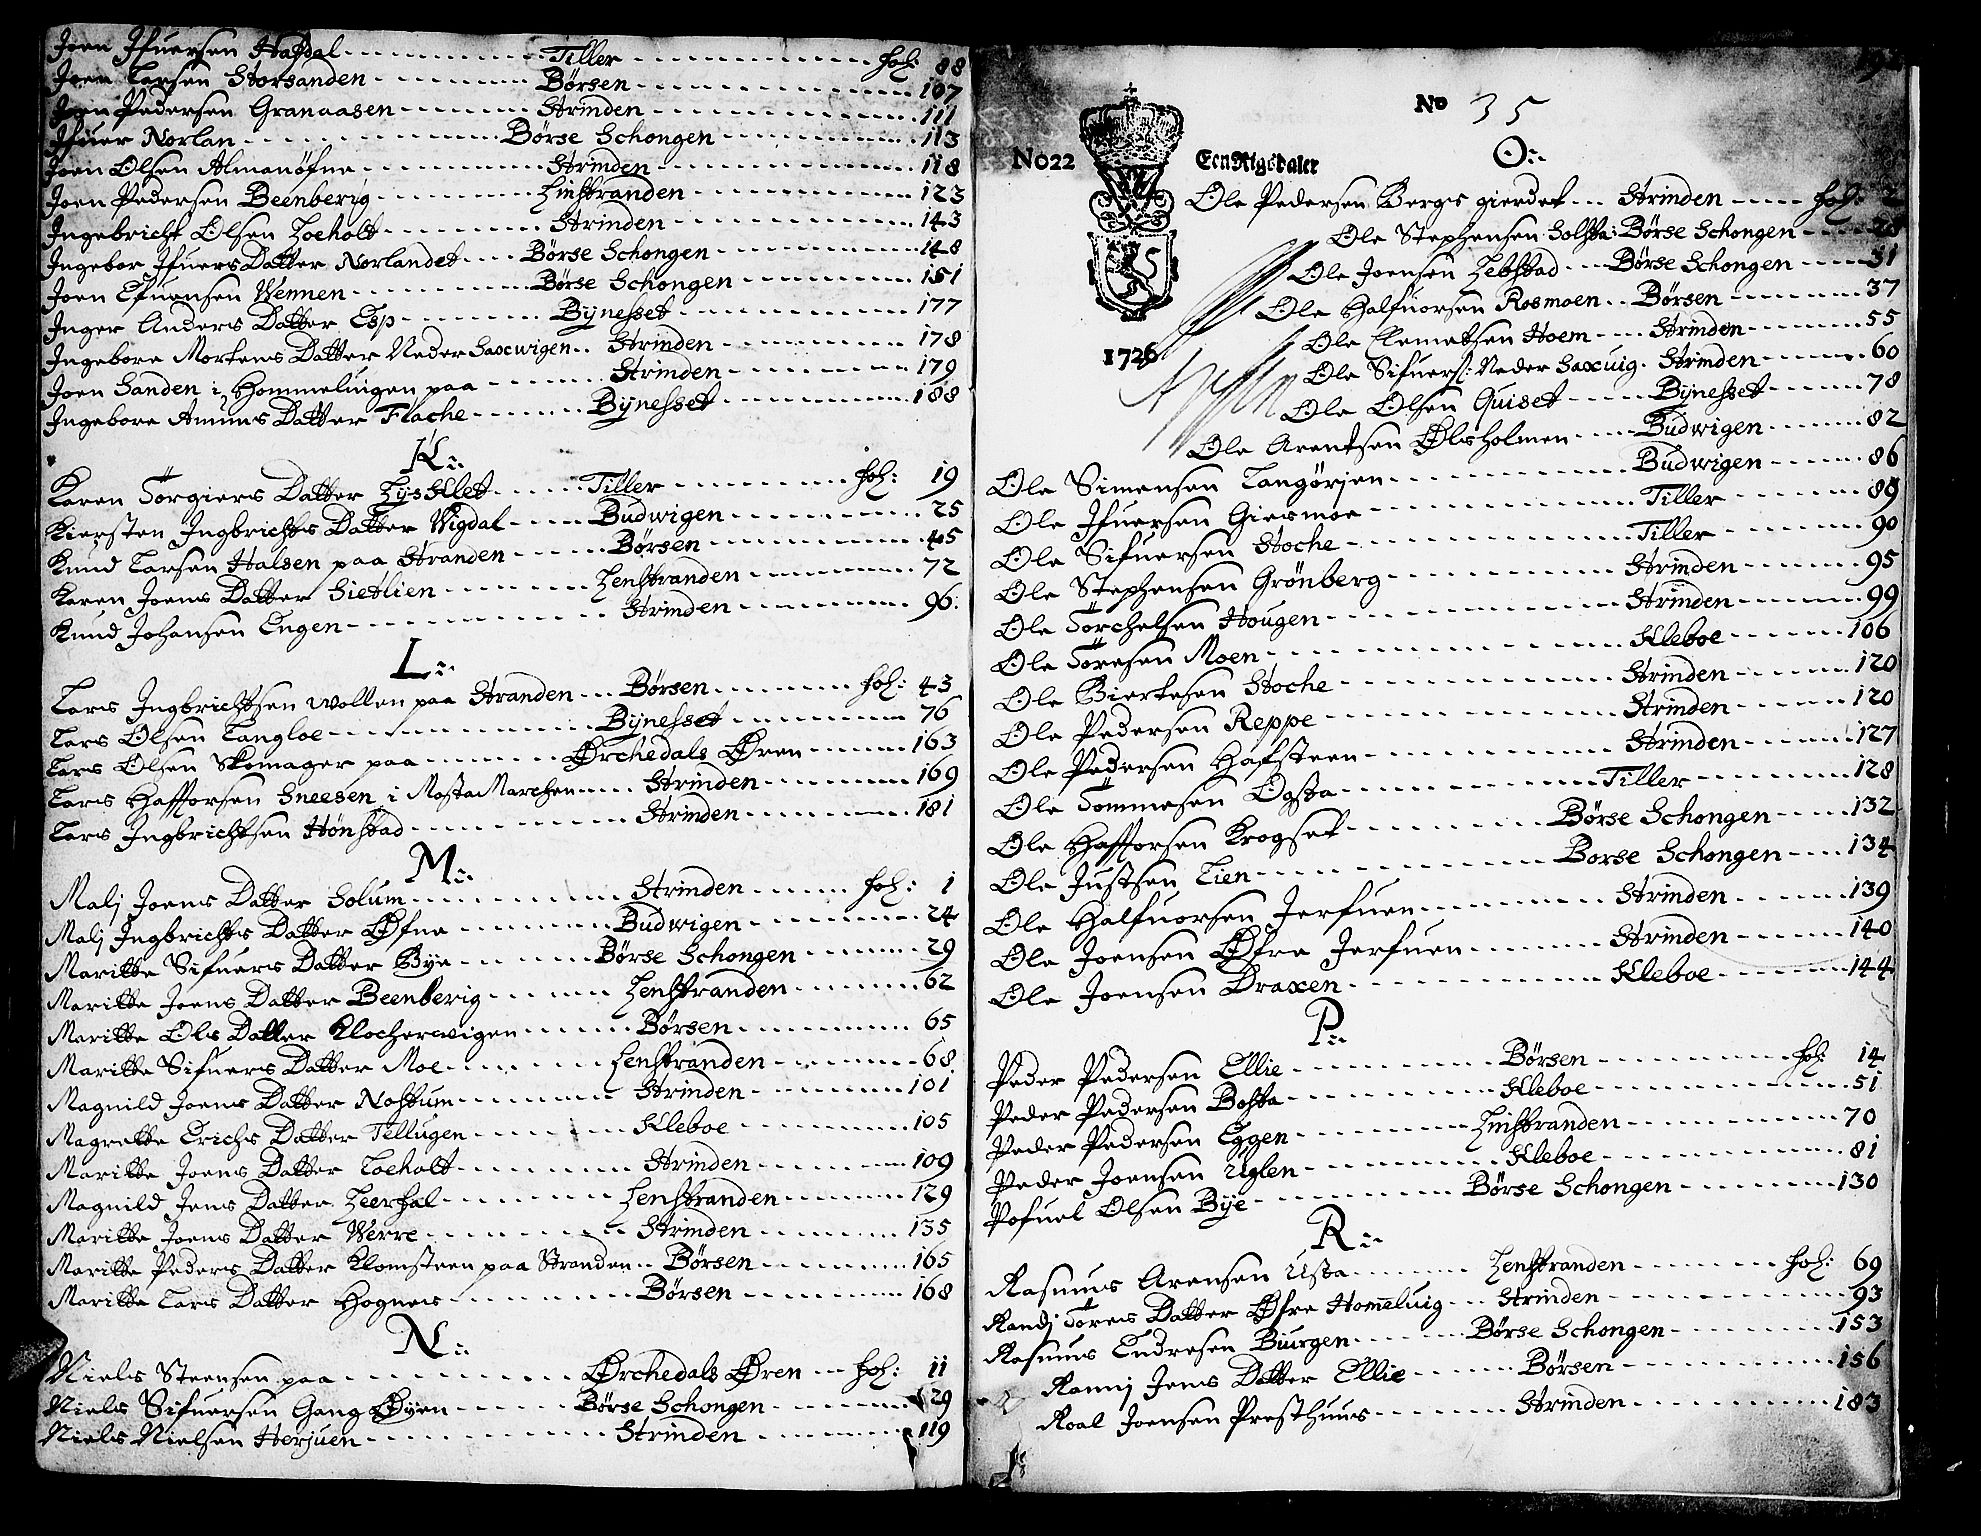 Joen Ifuersen Hafdal Tiller fol: 88
Joen Larsen Storsanden Børsen 107
Joen Pedersen Granaasen Strinden 111
Ifuer Norlan Børse Schongen 113
Joen Olsen Almanøfne Strinden 118
Joen Pedersen Beenberig Leinstranden 123
Ingebricht Olsen Loeholt Strinden 143
Ingebor Ifuers Datter Norlandet Børse Schongen 148
Joen Efuensen Wennen Børse Schongen 151
Inger Anders Datter Esp Bÿnesset 177
Ingebore Mortens Datter Neder Saxwigen Strinden 178
Joen Sanden i Hommeluigen paa Strinden 179
Ingebore Amuns Datter Flache Bÿnesset 188
K:
Karen Torgiers Datter Lysklet Tiller fol: 19
Kiersten Ingbrichts Datter Wigdal Budwigen 25
Knud Larsen Halsen paa Stranden Børsen 45
Karen Joens Datter Sietlien Lenstranden 72
Knud Johansen Engen Strinden 96:
L:
Lars Ingbrichtsen Wollen paa Stranden Børsen fol: 43
Lars Olsen Langloe Bÿnesset 76
Lars Olsen Skomager paa Ørchedals Øren 163
Lars Hafforsen Sneesen i MostaMarchen Strinden 169
Lars Ingbrichtsen Hønstad Strinden 181
M:
Malj Joens Datter Solum Strinden fol: 1
Malj Ingbrichts Datter Øfne Budwigen 24
Maritte Sifuers Datter Bÿe Børse Schongen 29
Maritte Joens Datter Beenberig Lenstranden 62
Maritte Ols Datter Klocherwigen Børsen 65
Maritte Sifuers Datter Moe Lenstranden 68
Magnild Joens Datter Nostum Strinden 101
Magrette Erichs Datter Tellugen Kleboe 105
Maritte Joens Datter Loeholt Strinden 109
Magnild Jens Datter Leerfal Lenstranden 129
Maritte Joens Datter Werre Strinden 135
Maritte Peders Datter Klomsteen paa Stranden Børsen 165
Maritte Lars Datter Hognes Børsen 168
N:
Niels Steensen paa Ørchedals Øren fol: 11
Niels Sifuersen Gang Øyen Børse Schongen 29
Niels Nielsen Herjuen Strinden 119
No 35
No22 Een Rigsdaler
1726
O:
Ole Pedersen Bergs gierdet Strinden fol: 2
Ole Stephensen Solsta: Børse Schongen 28
Ole Joensen Lebstad Børse Schongen 31
Ole Halfuorsen Rosmoen Børsen 37
Ole Clemetsen Hoem Strinden 55
Ole Sifuers: Neder Saxuig Strinden 60
Ole Olsen Quiset Bÿnesset 78
Ole Arentsen Ølsholmen Budwigen 82
Ole Simensen Langørjen Budwigen 86
Ole Ifuersen Giesmoe Tiller 89
Ole Sifuersen Stoche Tiller 90
Ole Stephensen Grönberg Strinden 95
Ole Torchelsen Hougen Strinden 99
Ole Toresen Moen Kleboe 106
Ole Biertesen Stoche Strinden 120
Ole Pedersen Reppe Strinden 120
Ole Pedersen Hafsteen Strinden 127
Ole Tommesen Ogsta Tiller 128
Ole Hafforsen Krogset Børse Schongen 132
Ole Justsen Lien Børse Schongen 134
Ole Halfuorsen Jerfuen Strinden 139
Ole Joensen Øfre Jerfuen Strinden 140
Ole Joensen Draxen Kleboe 144
P:
Peder Pedersen Ellie Børsen fol: 14
Peder Pedersen Bosta Kleboe 51
Peder Pedersen Eggen Leinstranden 70
Peder Joensen Uglen Kleboe 81
Pofuel Olsen Bÿe Børse Schongen 130
R:
Rasmus Arensen Usta Lenstranden fol: 69
Randj Tores Datter Øfre Homeluig Strinden 93
Rasmus Endresen Biurgen Børse Schongen 153
Rannj Jens Datter Ellie Børsen 156
Roal Joensen Presthuus Strinden 183